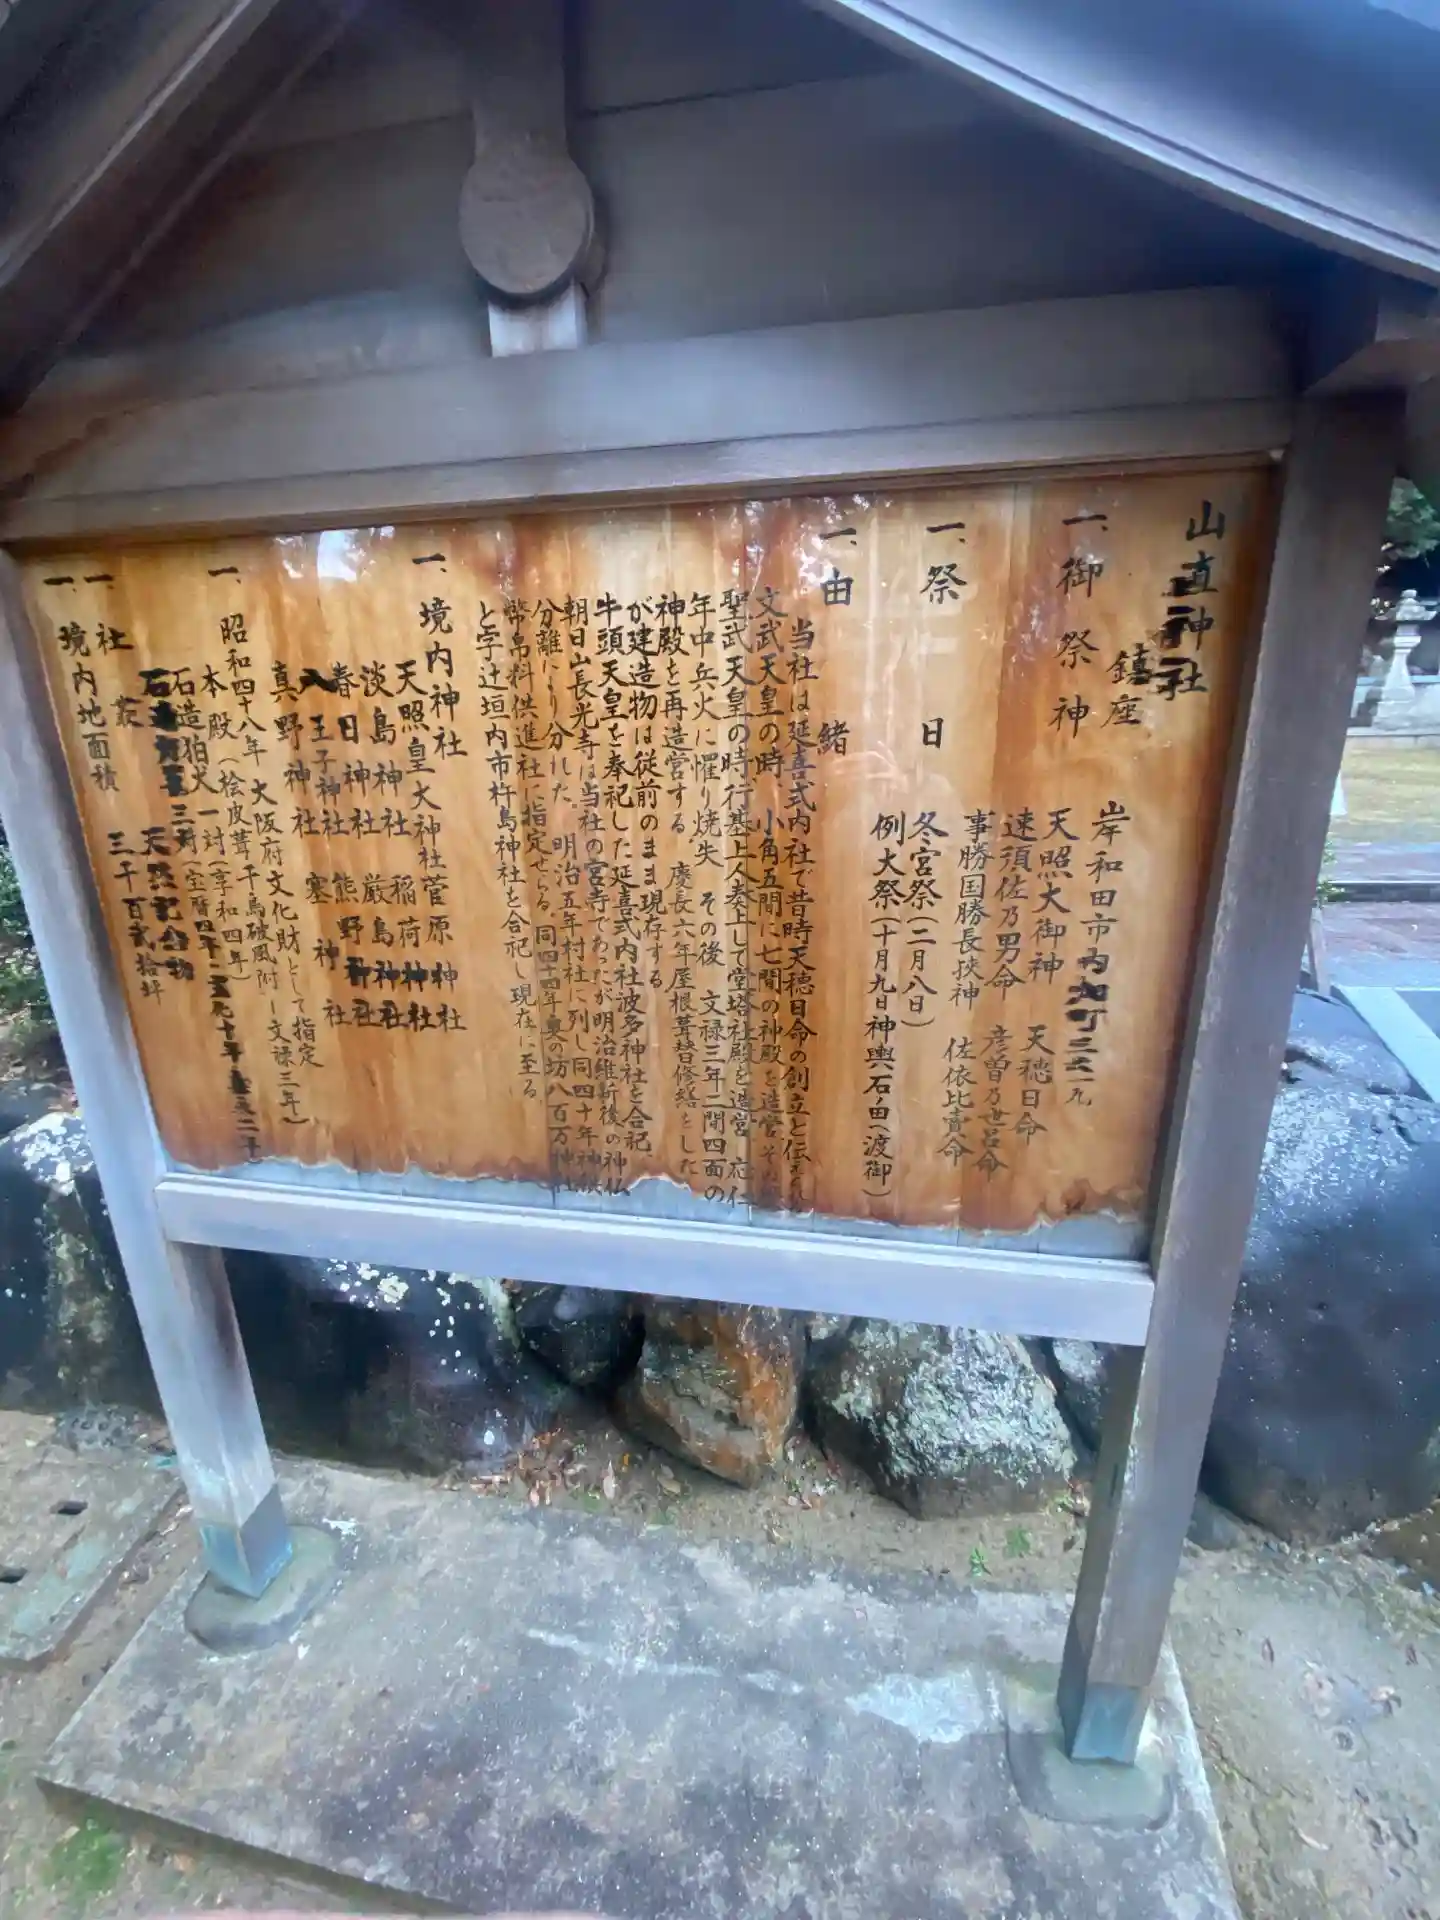 山直神社
鎮座 岸和田市内畑町三六一九
一、御祭神 天照大御神 天穂日命
速須佐乃男命 彦曽乃世呂命
事勝国勝長挾神 佐依比売命
一、祭日 冬宮祭(二月八日)
例大祭(十月九日神輿石ノ由へ渡御)
一、由緒
当社は延喜式内社で昔時天穂日命の創立と伝えられ
文武天皇の時、小角五間に七間の神殿を造営、その後
聖武天皇の時行基上人奏上して堂塔社殿を造営 応仁
年中兵火に罹り焼失 その後 文禄三年二間四面の
神殿を再造営する 慶長六年屋根葺替修繕をした
が建造物は従前のまま現存する
牛頭天皇を奉祀した延喜式内社波多神社を合祀
朝日山長光寺は当社の宮寺であったが明治維新後の神仏
分離により分れた。明治五年村社に列し同四十年神饌
幣帛料供進社に指定せらる、同四十四年奥の坊八百万神社
と字辻垣内市杵島神社を合祀し現在に至る
一、境内神社
天照皇大神社 菅原神社
淡島神社 稲荷神社
春日神社 厳島神社
八王子神社 熊野神社
真野神社 塞神社
一、昭和四十八年 大阪府文化財として指定
本殿(桧皮葺千鳥破風附ー文禄三年)
石造狛犬 一対(享和四年)
一、社叢 天然記念物
一、境内地面積 三千百弐拾坪